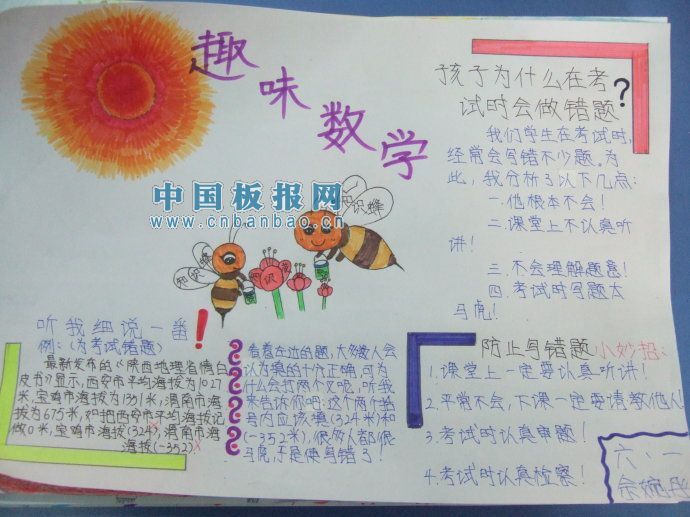 趣味数学
中国板报网
www.cnbanbao.cn
知识蜂
知识蜂
知识
孩子为什么在考
试时会做错题?
我们学生在考试时,
经常会写错不少题。为
此,我分析了以下几点:
一.他根本不会!
二.课堂上不认真听
讲!
三.不会理解题意!
四.考试时写题太
马虎!
听我细说一番!
例:(为考试错题)
最新发布的《陕西地理省情白
皮书》显示,西安市平均海拔为1027
米,宝鸡市海拔为1351米,渭南市海
拔为675米,如把西安市平均海拔记
做0米,宝鸡市海拔(324),渭南市海
海拔(-352)
看着在边的题,大多数人会
认为填的十分正确,可为
什么会打两个叉呢,听我
来告诉你吧:这个两个括
号内应该填(324米)和
(-352米),很多人都很
马虎,于是便写错了!
防止写错题小妙招:
1.课堂上一定要认真听讲!
2.平常不会,下课一定要请教他人
3.考试时认真审题!
4.考试时认真检察!
六、一
余婉